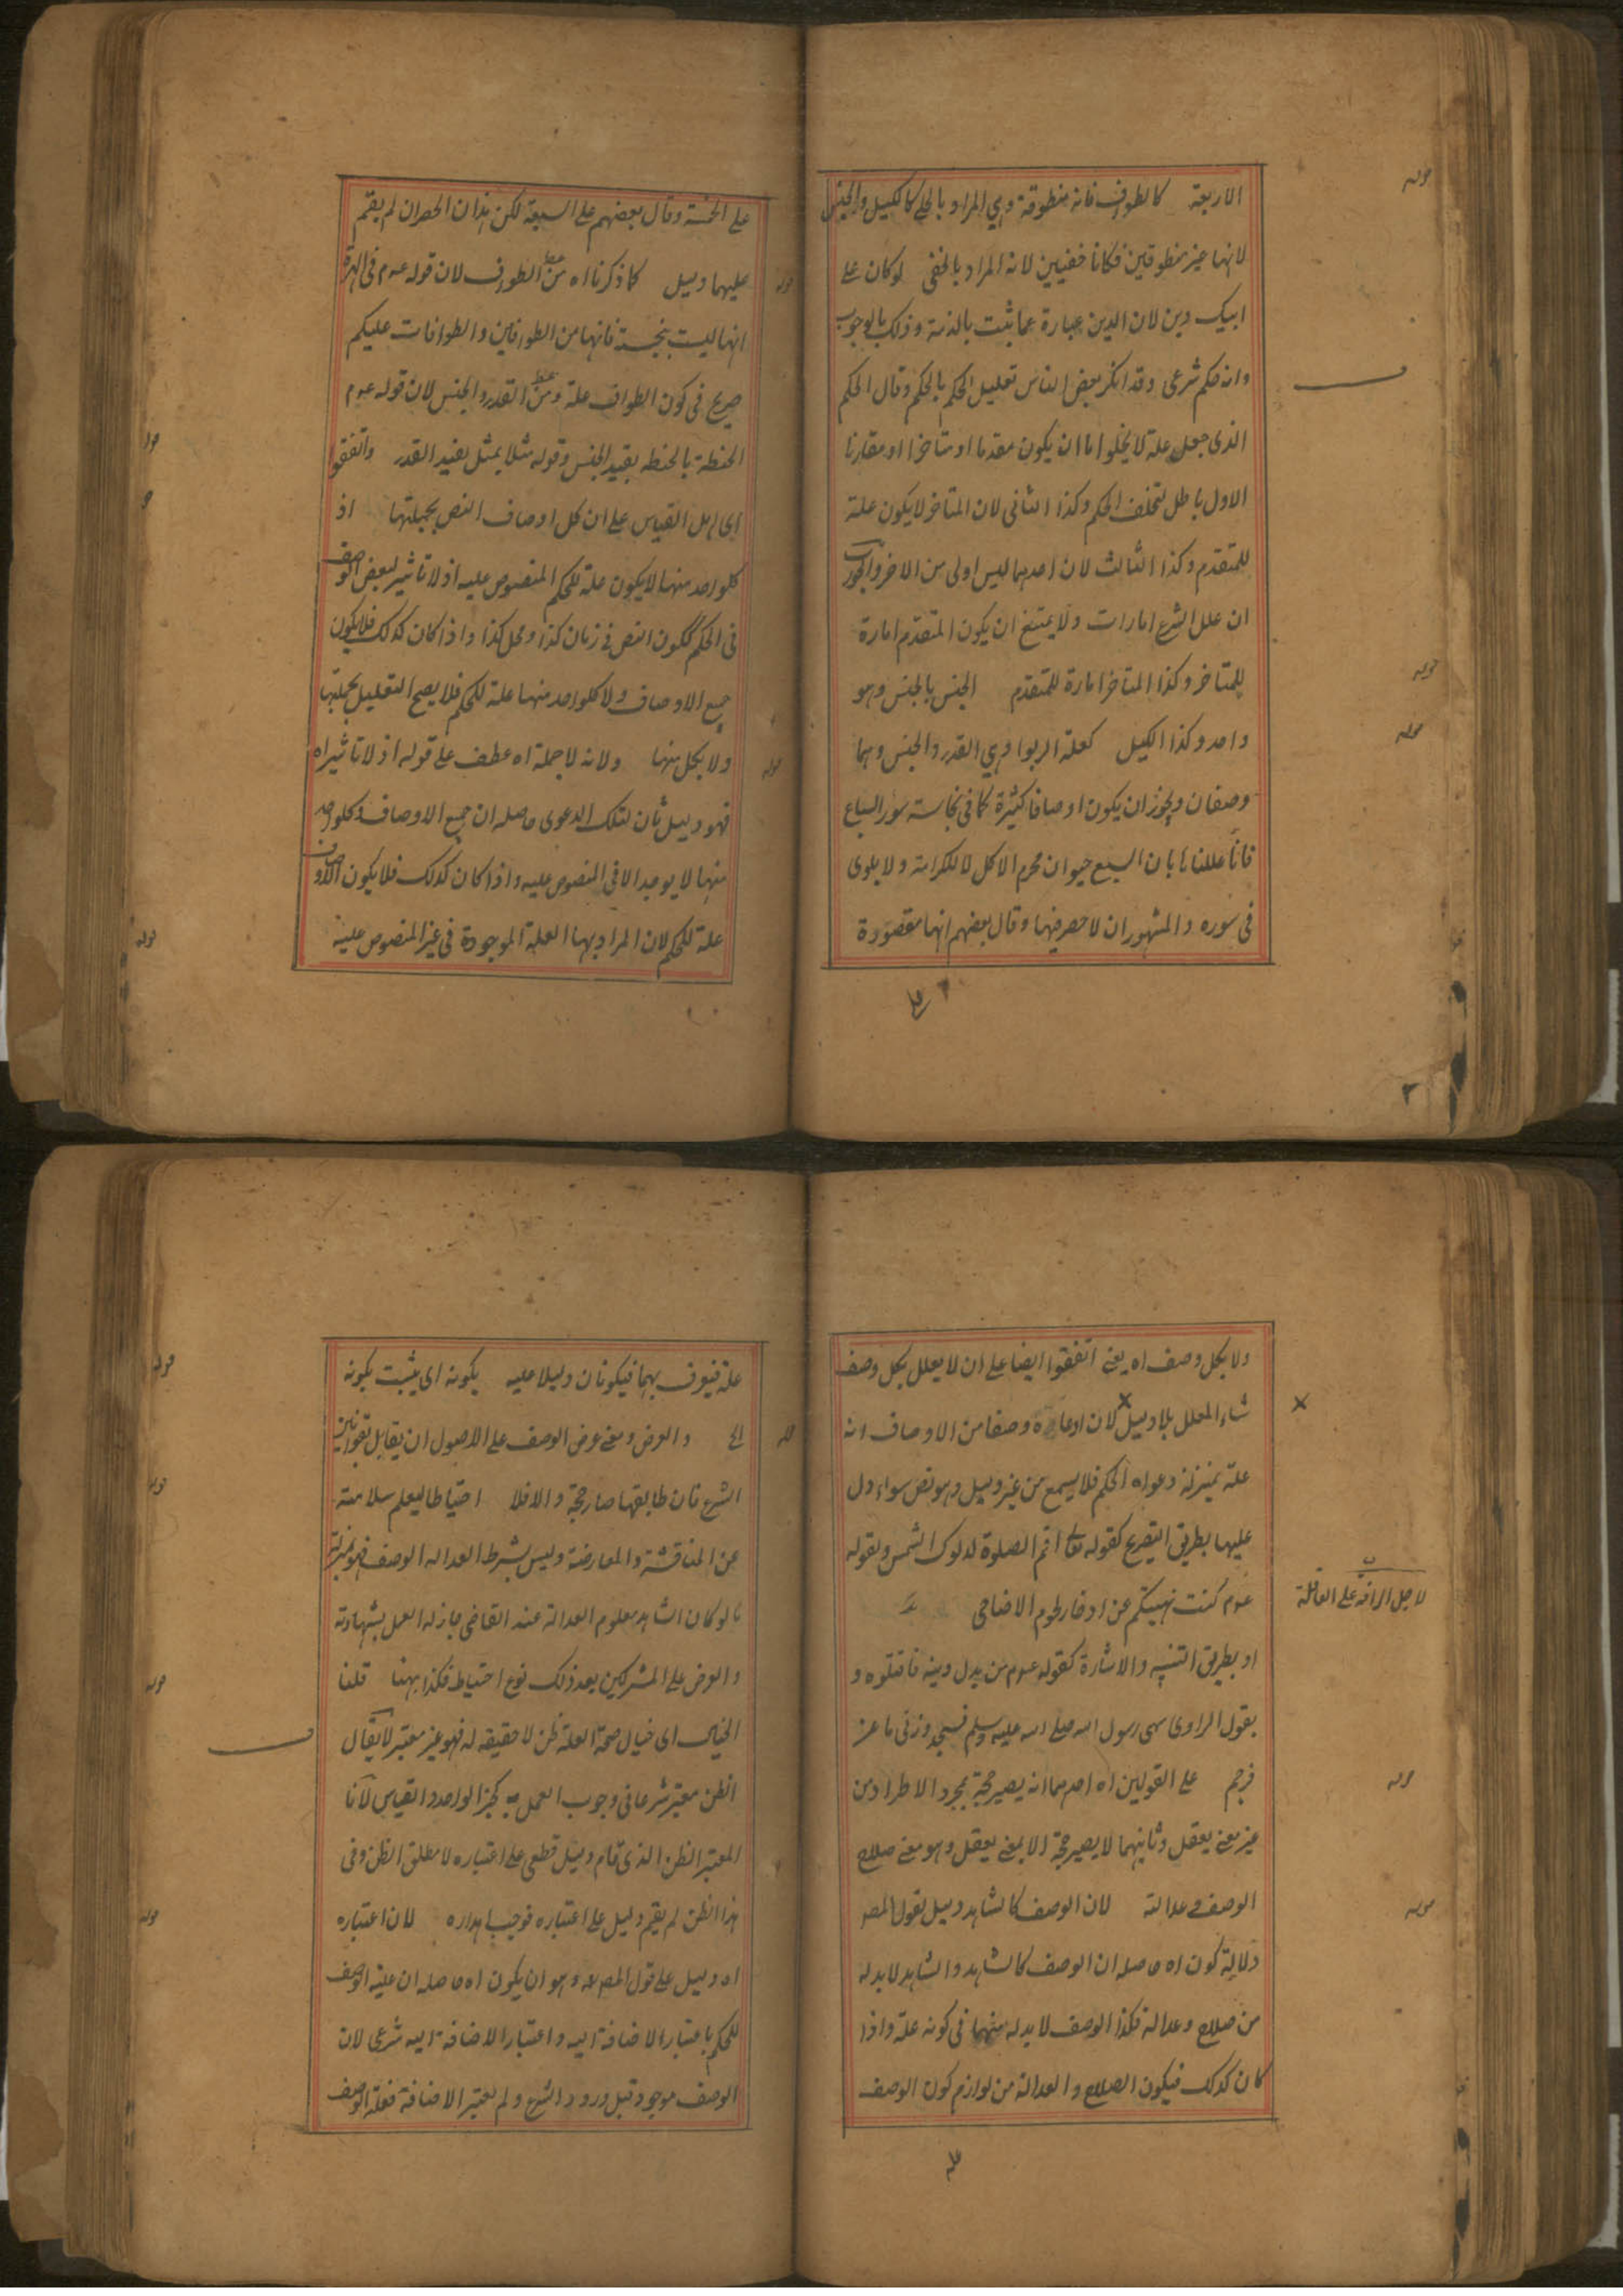 الاربعة كالطواف فانه منطوقة وهي المراد بالجلي كالكيل والجنس
لانهما غير منطوقين فكانا خفيين لانه المراد بالخفى لو كان على
ابيك دين لان الدين عبارة عما يثبت بالذمة وذلك بالوجوب
وانه حكم شرعى وقد انكر بعض الناس تعليل الحكم بالحكم وقال الحكم
الذى جعل علة لا يخلوا اما ان يكون مقدما او متاخرا او مقارنا
الاول باطل لتخلف الحكم وكذا الثانى لان المتاخر لا يكون علة
للمتقدم وكذا الثالث لان احدهما ليس اولى من الاخر والجواب
ان علل الشرع امارات ولا يمتنع ان يكون المتقدم امارة
للمتاخر وكذا المتاخر امارة للمتقدم الجنس بالجنس وهو
واحد وكذا الكيل كعلة الربوا وهي القدر والجنس وهما
وصفان ويجوز ان يكون اوصافا كثيرة كما فى نجاسة سور السباع
فانا عللنا بان السبع حيوان محرم الاكل لا للكرامة ولا بلوى
فى سوره والمشهور ان لا حصر فيها وقال بعضهم انها مقصورة
على
قوله
قوله
قوله
على الخمسة وقال بعضهم على السبعة لكن هذان الحصران لم يقم
عليهما دليل كما ذكرنا اه من الطواف لان قوله عم فى الهرة
انها ليست بنجسة فانها من الطوافين والطوافات عليكم
صريح فى كون الطواف علة ومن القدر والجنس لان قوله عم
الحنطة بالحنطه يفيد الجنس وقوله مثلا بمثل يفيد القدر واتفقوا
اى اهل القياس على ان كل اوصاف النص بجملتها اذ
كلواحد منها لا يكون علة للحكم المنصوص عليه اذ لا تاثير لبعض الوصف
فى الحكم ككون النص فى زمان كذا ومحل كذا واذا كان كذلك فلا يكون
جميع الاوصاف ولا كلواحد منها علة للحكم فلا يصح التعليل بجملتها
ولا بكل منها ولانه لا جملة اه عطف على قوله اذ لا تاثير اه
فهو دليل ثان لتلك الدعوى حاصله ان جميع الاوصاف وكلواحد
منها لا يوجد الا فى المنصوص عليه واذا كان كذلك فلا يكون الاوصاف
علة للحكم لان المراد بها العلة الموجودة فى غير المنصوص عليه
قوله
قوله
قوله
ولا بكل وصف اه يعنى اتفقوا ايضا على ان لا يعلل بكل وصف
شاء المعلل بلا دليل لان ادعاءه وصفا من الاوصاف انه
علة بمنزلة دعواه الحكم فلا يسمع من غير دليل وهو نص سواء دل
عليها بطريق التصريح كقوله تعالى اقم الصلوة لدلوك الشمس وبقوله
عم كنت نهيتكم عن ادخار لحوم الاضاحى
لاجل الرافة على القافلة
او بطريق التنبيه والاشارة كقوله عم من بدل دينه فاقتلوه و
بقول الراوى سهى رسول الله صلى الله عليه وسلم فسجد وزنى ماعز
فرجم على القولين اه احدهما انه يصير حجة بمجرد الاطراد من
غير معنى يعقل وثانيهما لا يصير حجة الا بمعنى يعقل وهو معنى صلاح
الوصف وعدالته لان الوصف كالشاهد دليل لقول المص
دلالة كون اه حاصله ان الوصف كالشاهد والشاهد لا بد له
من صلاح وعدالة فكذا الوصف لا بد له منهما فى كونه علة واذا
كان كذلك فيكون الصلاح والعدالة من لوازم كون الوصف
قوله
قوله
علة فيعرف بهما فيكونان دليلا عليه بكونه اى يثبت بكونه
اه والعرض ومعنى عرض الوصف على الاصول ان يقابل بقوانين
الشرع فان طابقها صار حجة والا فلا احتياطا ليعلم سلامته
عن المناقشة والمعارضة وليس بشرط العدالة الوصف فهو بمنزلة
ما لو كان الشاهد معلوم العدالة عند القاضى جاز له العمل بشهادته
والعرض على المشركين بعد ذلك نوع احتياط فكذا ههنا قلنا
الخيال اى خيال صحة العلة ظن لا حقيقة له فهو غير معتبر لا يقال
الظن معتبر شرعا فى وجوب العمل به كخبر الواحد والقياس لانا
المعتبر الظن الذى قام دليل قطعى على اعتباره لا مطلق الظن وفى
هذا الظن لم يقم دليل على اعتباره فوجب اهداره لان اعتباره
اه دليل على قول المص وهو ان يكون اه حاصله ان علية الوصف
للحكم باعتبار الاضافة اليه واعتبار الاضافة اليه شرعى لان
الوصف موجود قبل ورود الشرع ولم يعتبر الاضافة فعلة الوصف
قوله
قوله
قوله
قوله